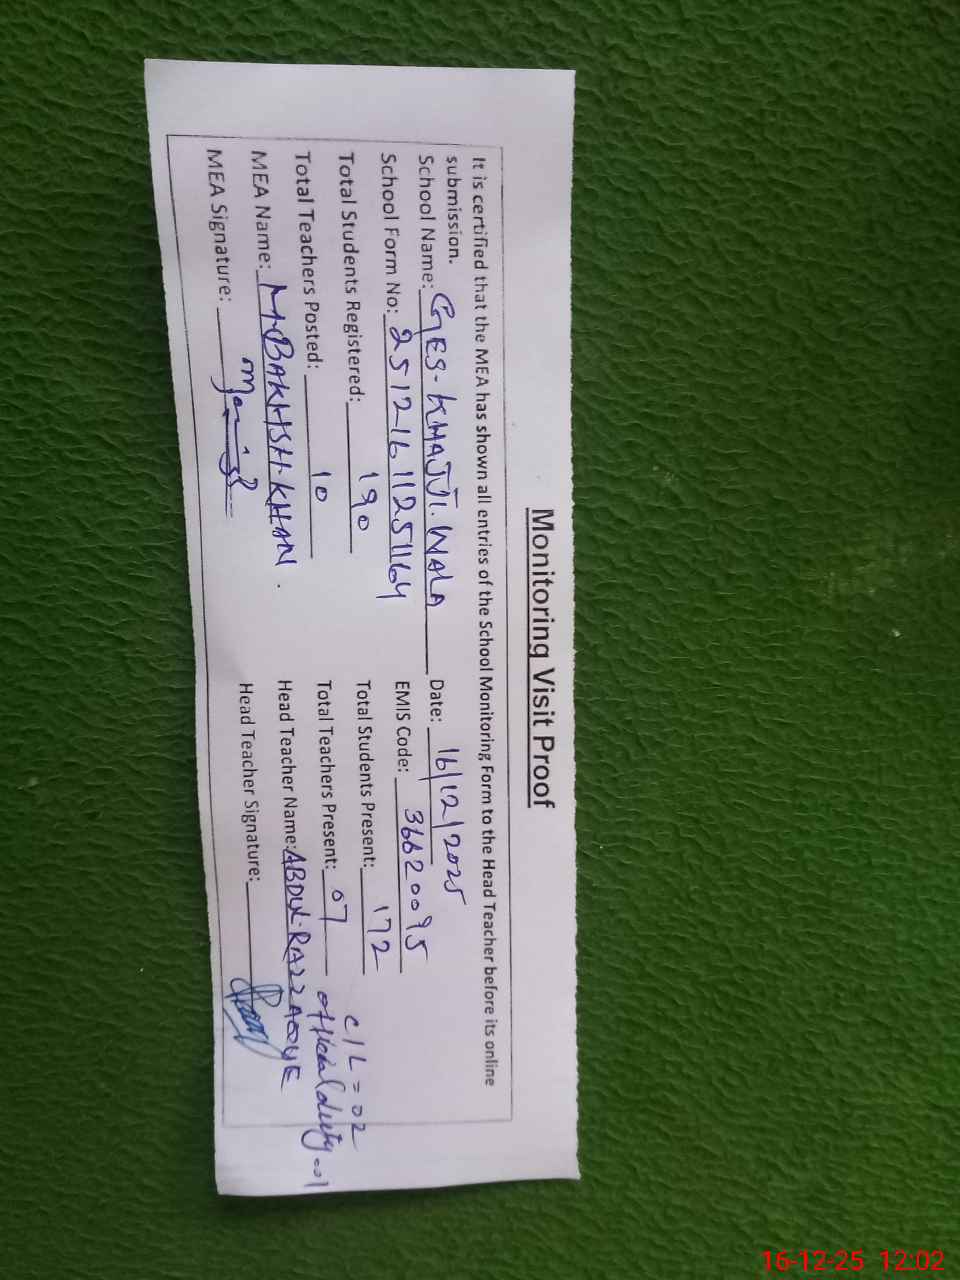 Monitoring Visit Proof
It is certified that the MEA has shown all entries of the School Monitoring Form to the Head Teacher before its online
submission.
School Name: GES-KHAJJI.WALA Date: 16/12/2025
School Form No: 25121611251164 EMIS Code: 36620095
Total Students Registered: 190 Total Students Present: 172 C/L = 02
Total Teachers Posted: 10 Total Teachers Present: 07 official duty = 01
MEA Name: M.BAKHSH.KHAN. Head Teacher Name: ABDUL.RAZZAQUE
MEA Signature: Head Teacher Signature:
16-12-25 12:02